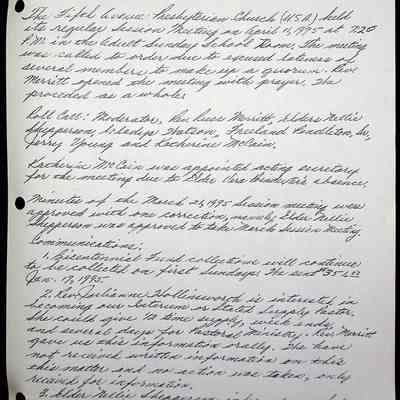 The Fifth Avenue Presbyterian Church (U.S.A.) held
its regular Session Meeting on April 1, 1995 at 7:20
P.M. in the Adult Sunday School Room. The meeting
was called to order due to excused lateness of
several members to make up a quorum. Rev.
Merritt opened the meeting with prayer. We
proceeded as a whole.
Roll Call: Moderator, Rev. Merritt, Elders Nellie
Shepperson, Gladys Watson, Freeland Pendleton, Sr.,
Jerry Young and Katherine McCain.
Katherine McCain was appointed acting secretary
for the meeting due to Elder Vera absence.
Minutes of the March 21, 1995 Session meeting were
approved with one correction, namely, Elder Nellie
Shepperson was approved to take March Session Meeting.
Communications:
1. Bicentennial Fund collections will continue
to be collected on first Sundays. We sent
Jan. 17, 1995.
2. Rev. Julianne Hollinsworth is interested in
becoming our Interim or Stated Supply Pastor.
She could give to time supply, week ends,
and several days for Pastoral Ministry. Rev. Merritt
gave us this information orally. We have
not received written information on this
this matter and no action was taken, only
received for information.
3. Elder Nellie Shepperson